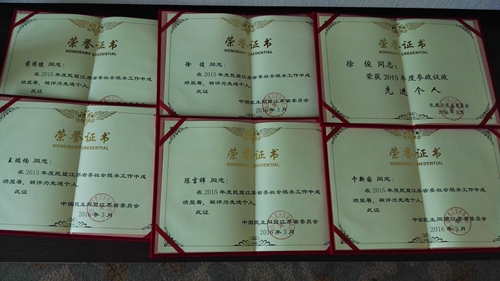 荣誉证书
HONORARY CREDENTIAL
同志:
在2015年度民盟江苏省委社会服务工作中成
绩显著,被评为先进个人。
此证
荣誉证书
HONORARY CREDENTIAL
徐俊 同志:
在2015年度民盟江苏省委社会服务工作中成
绩显著,被评为先进个人。
此证
中国民主同盟江苏省委员会
2016年3月
荣誉证书
HONORARY CREDENTIAL
徐俊同志:
荣获2015年度参政议政
先进个人
荣誉证书
HONORARY CREDENTIAL
同志:
在2015年度民盟江苏省委社会服务工作中成
绩显著,被评为先进个人。
此证
中国民主同盟江苏省委员会
2016年3月
荣誉证书
HONORARY CREDENTIAL
同志:
在2015年度民盟江苏省委社会服务工作中成
绩显著,被评为先进个人。
此证
中国民主同盟江苏省委员会
2016年3月
荣誉证书
HONORARY CREDENTIAL
同志:
在2015年度民盟江苏省委社会服务工作中成
绩显著,被评为先进个人。
此证
中国民主同盟江苏省委员会
2016年3月